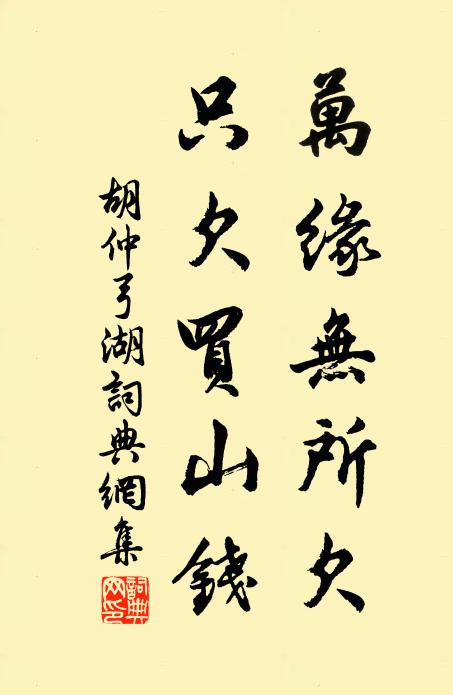 萬緣無所欠
只欠買山錢
胡仲弓湖詞典網集
詞典網印